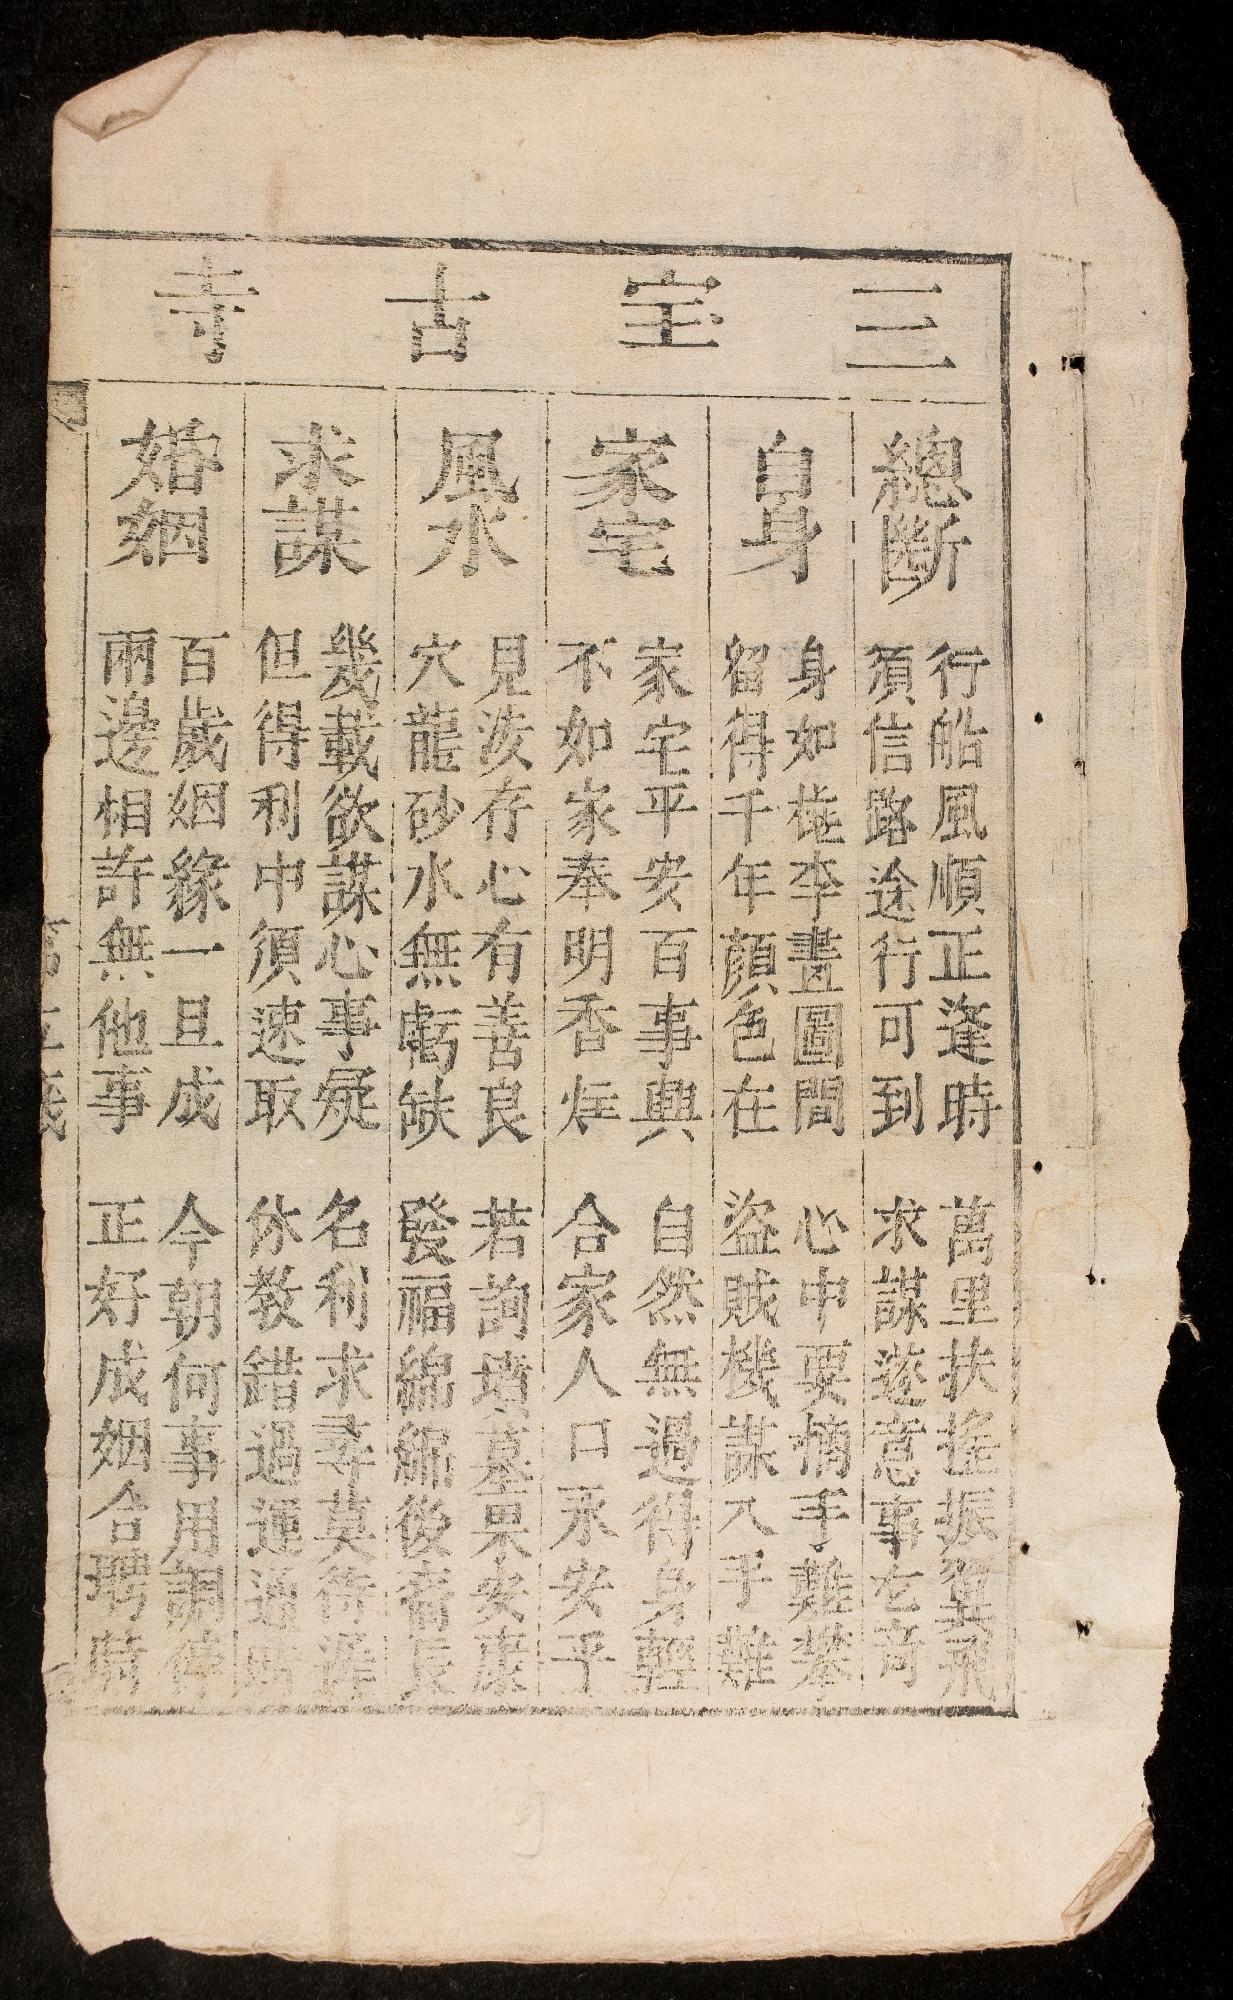 三宝古寺
總斷
行船風順正逢時
萬里扶搖振翼飛
須信路途行可到
求謀遂意事乞奇
自身
身如桃李畫圖間
心中要摘手難攀
留得千年顏色在
盜賊機謀入手難
家宅
家宅平安百事興
自然無過得身輕
不如家奉明香炷
合家人口永安平
風水
見淡存心有善良
若詢墳墓果安康
穴龍砂水無虧缺
發福綿綿後裔長
求謀
幾載欲謀心事疑
名利求尋莫待遲
但得利中須速取
休教錯過運通時
婚姻
百歲姻緣一旦成
今朝何事用調停
兩邊相許無他事
正好成姻合聘時